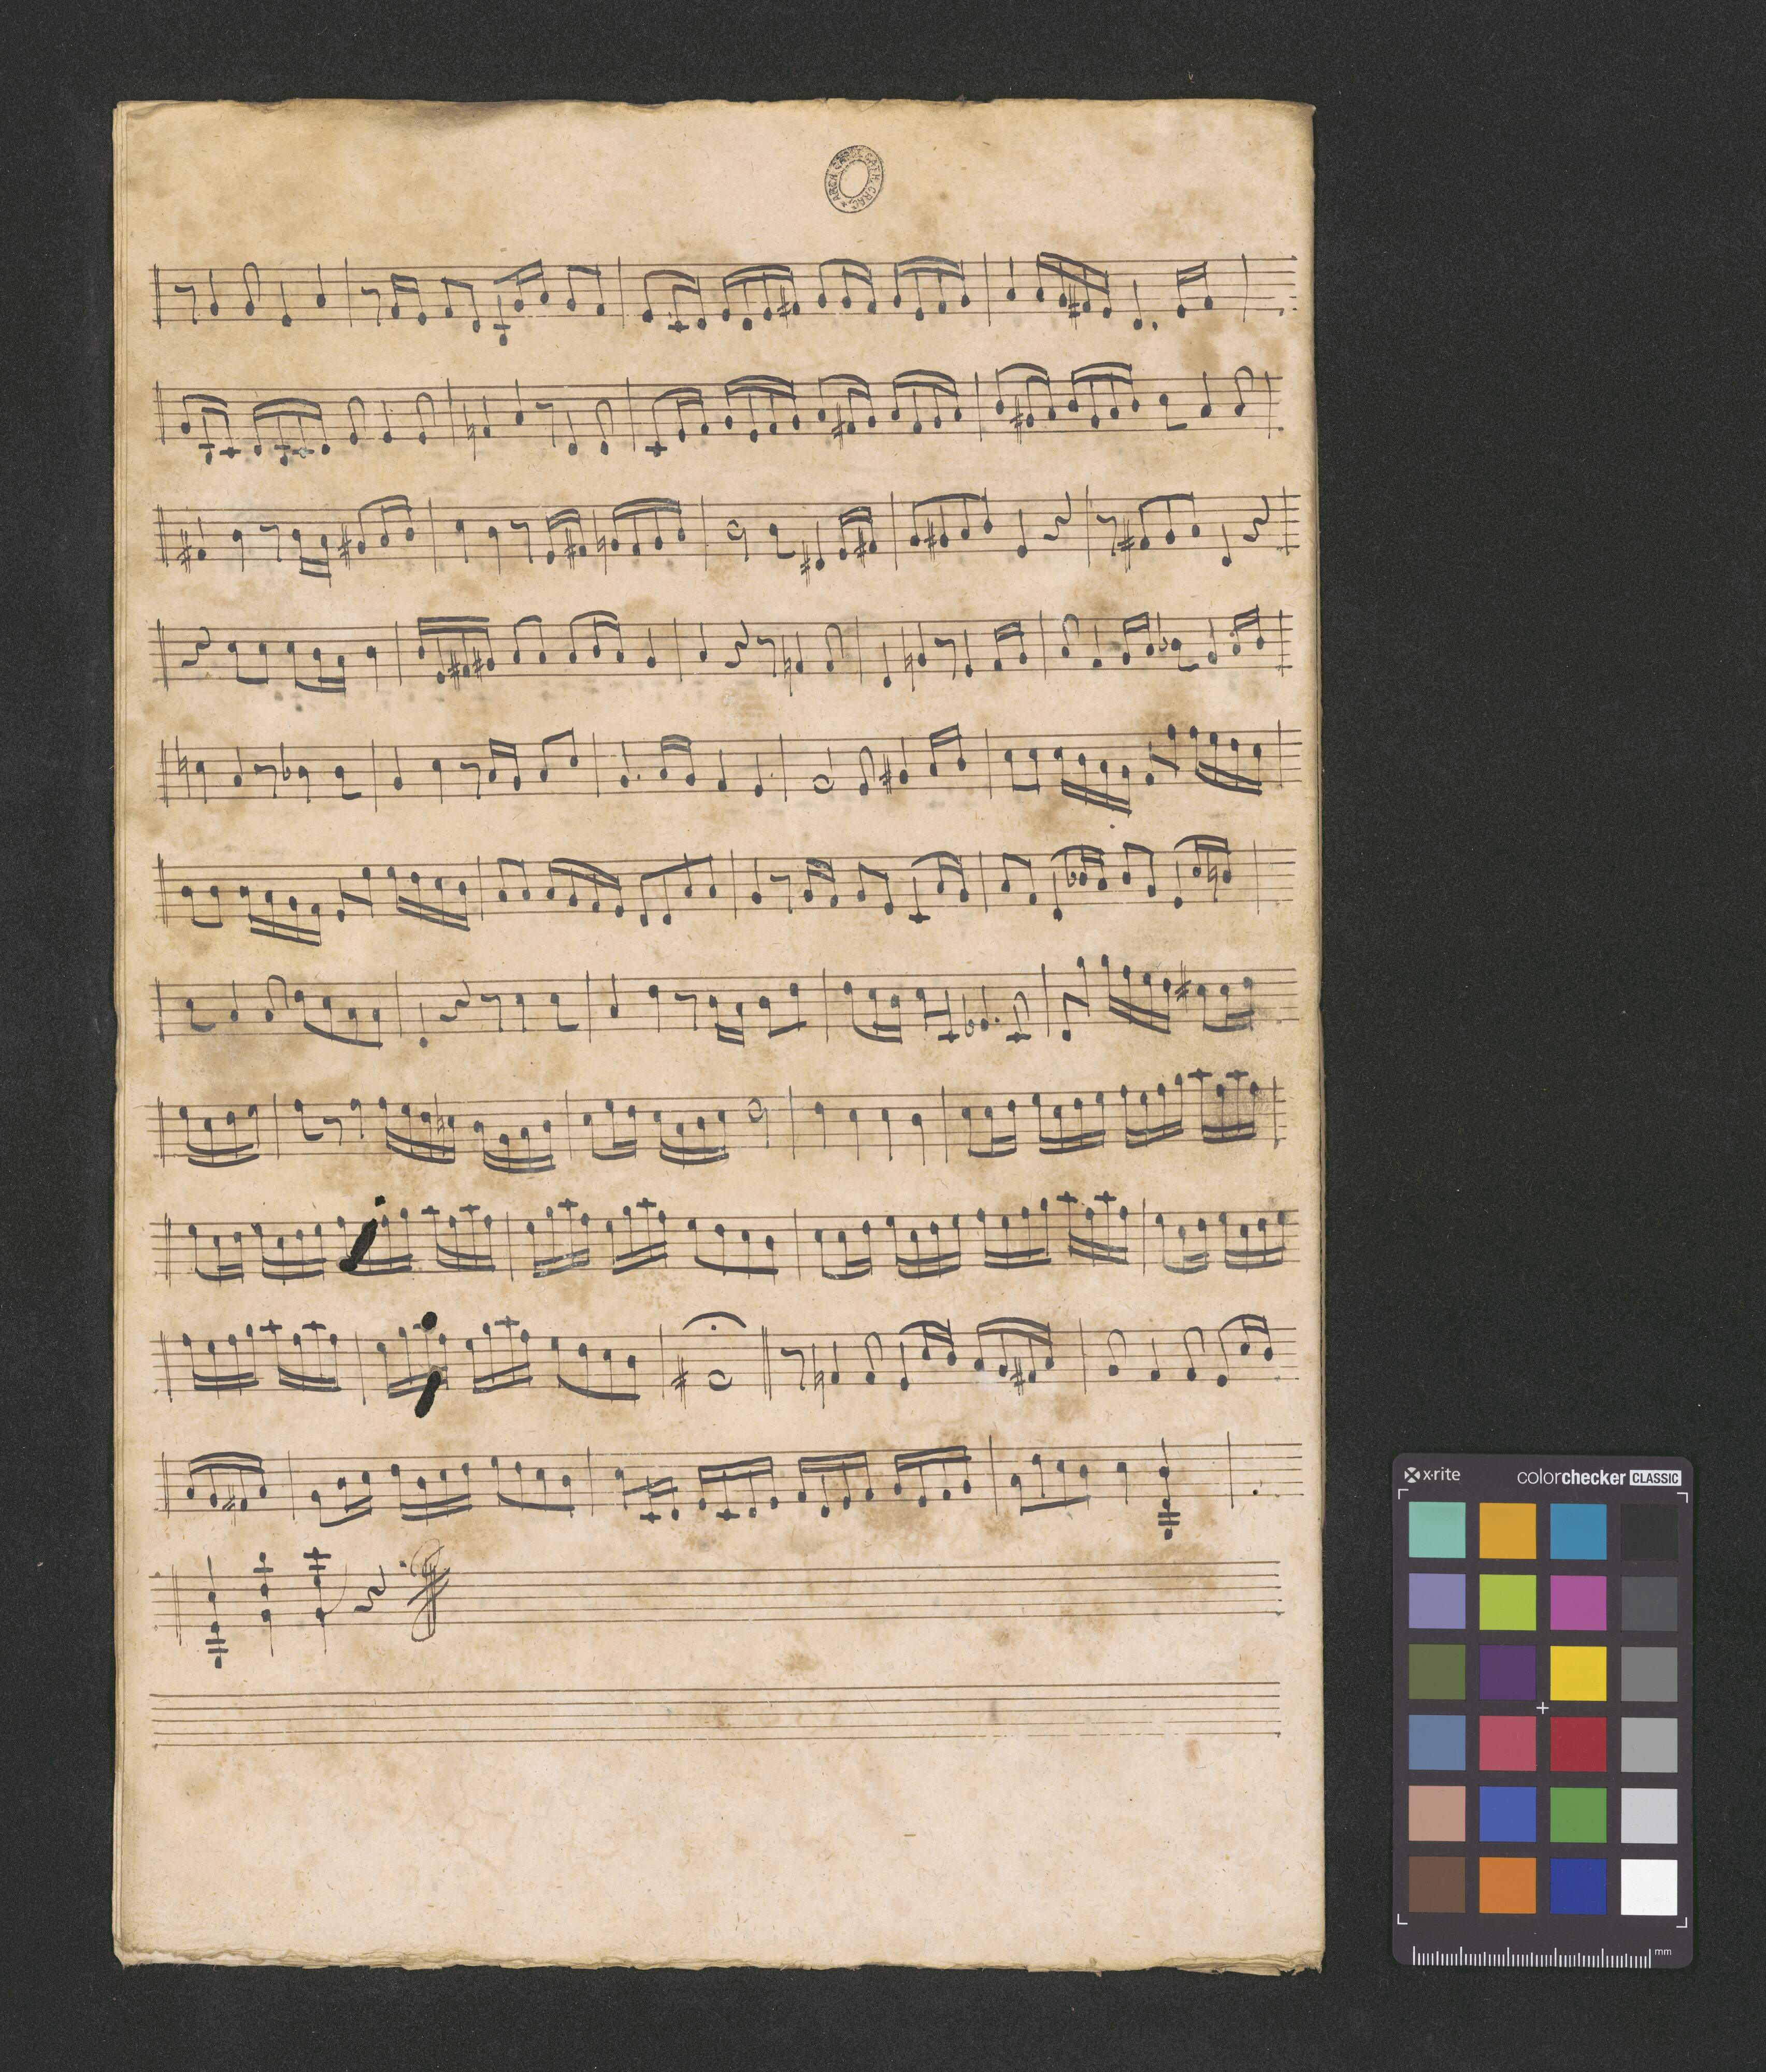 ARCH. CAPIT. CATH. CRAC.
x-rite
colorchecker CLASSIC
mm